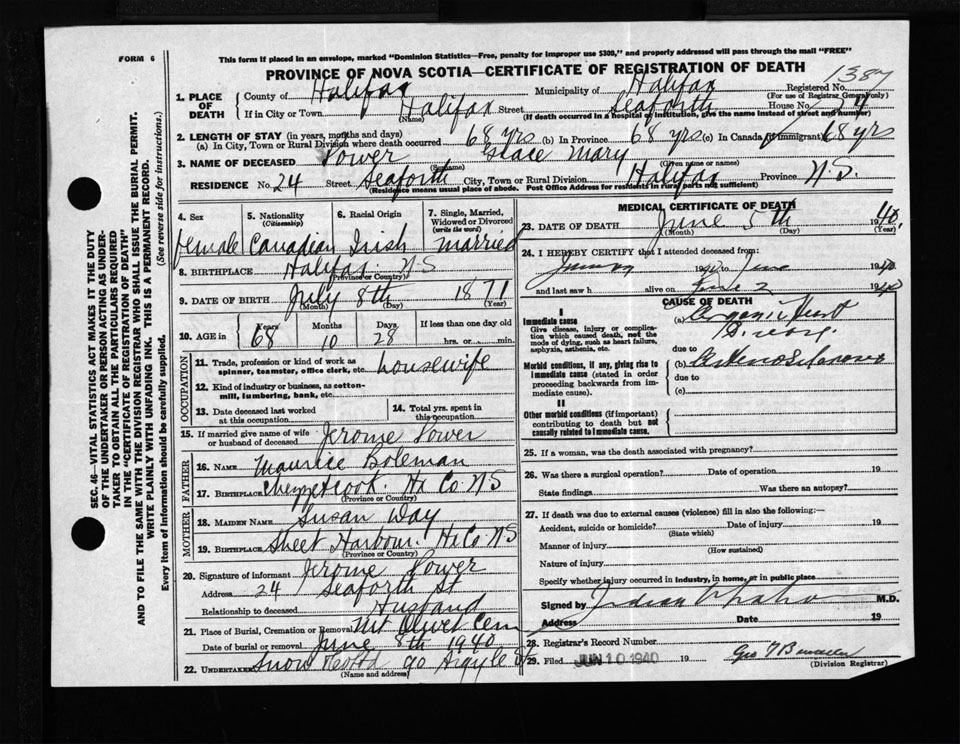 FORM 6
This form if placed in an envelope, marked "Dominion Statistics—Free, penalty for improper use $300," and properly addressed will pass through the mail "FREE"
PROVINCE OF NOVA SCOTIA—CERTIFICATE OF REGISTRATION OF DEATH
1387
1. PLACE OF DEATH
County of Halifax Municipality of Halifax Registered No.
(For use of Registrar General only)
If in City or Town Halifax Street Seaforth House No. 24
(Name) (If death occurred in a hospital or institution, give the name instead of street and number)
2. LENGTH OF STAY (in years, months and days)
(a) In City, Town or Rural Division where death occurred 68 yrs (b) In Province 68 yrs (c) In Canada if immigrant 68 yrs
3. NAME OF DECEASED Power Grace Mary
(Surname) (Given name or names)
RESIDENCE No. 24 Street Seaforth City, Town or Rural Division Halifax Province N.S.
(Residence means usual place of abode. Post Office Address for residents in rural parts not sufficient)
4. Sex 5. Nationality (Citizenship) 6. Racial Origin 7. Single, Married, Widowed or Divorced (write the word)
female Canadian Irish married
8. BIRTHPLACE Halifax N S
(Province or Country)
9. DATE OF BIRTH July 8th 1871
(Month) (Day) (Year)
10. AGE in Years Months Days If less than one day old
68 10 28 hrs. or min.
OCCUPATION
11. Trade, profession or kind of work as spinner, teamster, office clerk, etc. housewife
12. Kind of industry or business, as cotton-mill, lumbering, bank, etc.
13. Date deceased last worked at this occupation
14. Total yrs. spent in this occupation
15. If married give name of wife or husband of deceased Jerome Power
FATHER
16. NAME Maurice Boleman
17. BIRTHPLACE Chezzetcook. Hx Co. N S
(Province or Country)
MOTHER
18. MAIDEN NAME Susan Day
19. BIRTHPLACE Sheet Harbour. Hx Co. N S
(Province or Country)
20. Signature of informant Jerome Power
Address 24 Seaforth St
Relationship to deceased Husband
21. Place of Burial, Cremation or Removal Mt Olivet Cem
Date of burial or removal June 8th 1940
22. UNDERTAKER Snow 90 Argyle St
(Name and address)
MEDICAL CERTIFICATE OF DEATH
23. DATE OF DEATH June 5th 1940
(Month) (Day) (Year)
24. I HEREBY CERTIFY that I attended deceased from:
1940 to June 1940
and last saw h alive on June 2 1940
CAUSE OF DEATH
I
Immediate cause
Give disease, injury or complication which caused death, not the mode of dying, such as heart failure, asphyxia, asthenia, etc.
(a) Organic Heart Disease
due to
Morbid conditions, if any, giving rise to immediate cause (stated in order proceeding backwards from immediate cause).
(b) Arteriosclerosis
due to
(c)
II
Other morbid conditions (if important) contributing to death but not causally related to immediate cause.
25. If a woman, was the death associated with pregnancy?
26. Was there a surgical operation? Date of operation 19
State findings Was there an autopsy?
27. If death was due to external causes (violence) fill in also the following:—
Accident, suicide or homicide? Date of injury 19
(State which)
Manner of injury
(How sustained)
Nature of injury
Specify whether injury occurred in industry, in home, or in public place
Signed by M.D.
Address Date 19
28. Registrar's Record Number
29. Filed JUN 10 1940 19
(Division Registrar)
SEC. 46—VITAL STATISTICS ACT MAKES IT THE DUTY
OF THE UNDERTAKER OR PERSON ACTING AS UNDER-
TAKER TO OBTAIN ALL THE PARTICULARS REQUIRED
IN THE "CERTIFICATE OF REGISTRATION OF DEATH"
AND TO FILE THE SAME WITH THE DIVISION REGISTRAR WHO SHALL ISSUE THE BURIAL PERMIT.
WRITE PLAINLY WITH UNFADING INK. THIS IS A PERMANENT RECORD.
Every item of information should be carefully supplied. (See reverse side for instructions.)